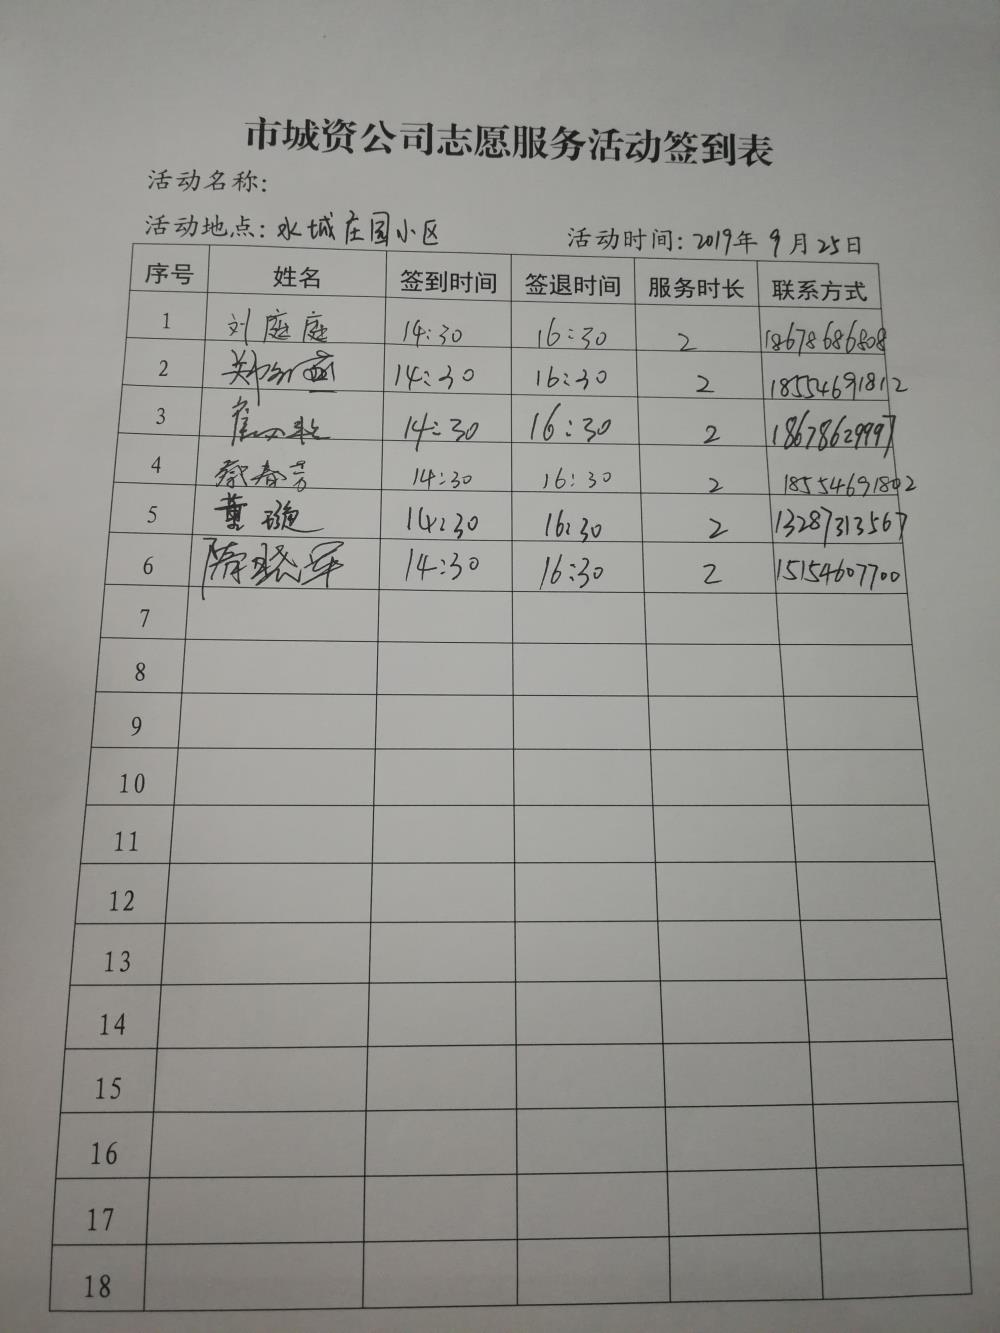 市城资公司志愿服务活动签到表
活动名称:
活动地点: 水城庄园小区 活动时间: 2019年9月25日
序号 姓名 签到时间 签退时间 服务时长 联系方式
1 刘庭庭 14:30 16:30 2 18678686808
2 14:30 16:30 2 18554691812
3 14:30 16:30 2 18678629997
4 蔡春芳 14:30 16:30 2 18554691802
5 董 14:30 16:30 2 13287313567
6 隋晓军 14:30 16:30 2 15154607700
7
8
9
10
11
12
13
14
15
16
17
18